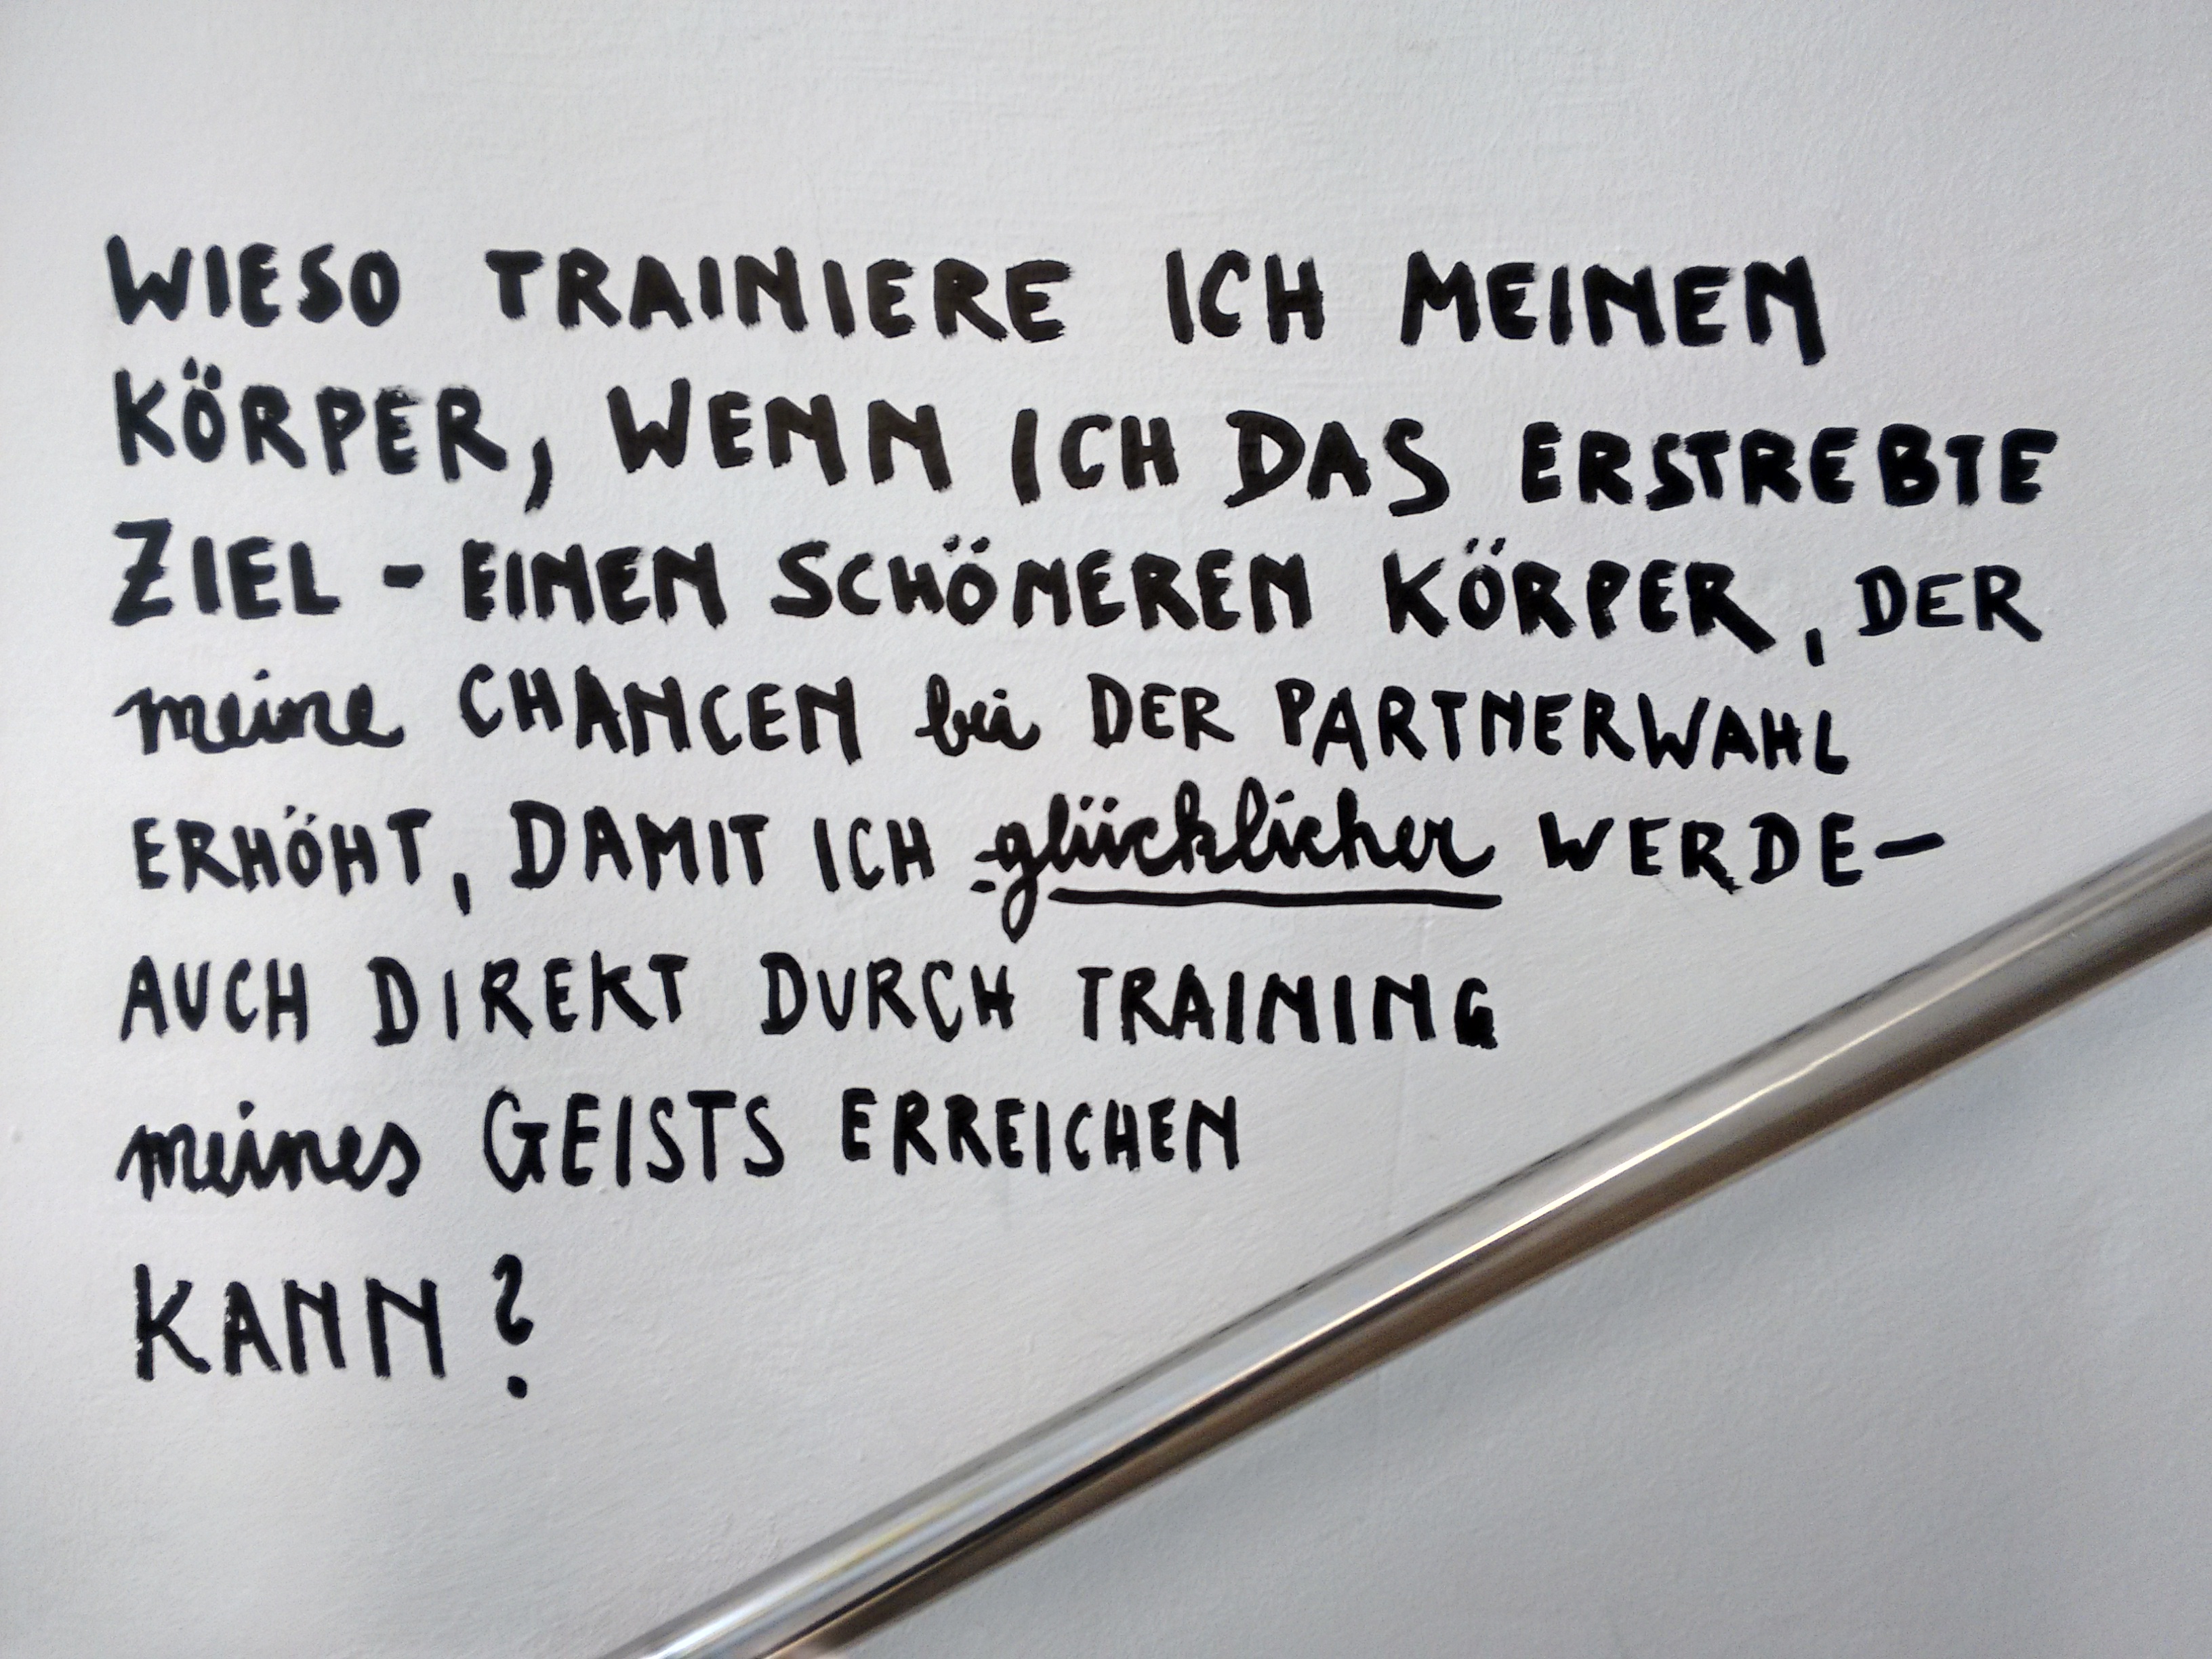 WIESO TRAINIERE ICH MEINEN
KÖRPER, WENN ICH DAS ERSTREBTE
ZIEL - EINEN SCHÖNEREN KÖRPER, DER
meine CHANCEN bei DER PARTNERWAHL
ERHÖHT, DAMIT ICH glücklicher WERDE-
AUCH DIREKT DURCH TRAINING
meines GEISTS ERREICHEN
KANN?